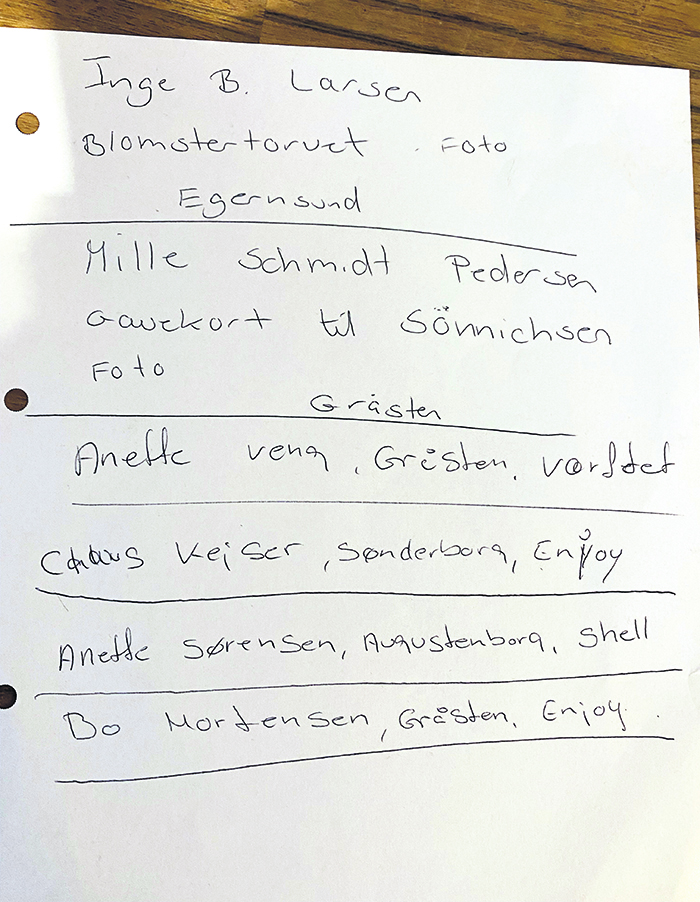 Inge B. Larsen
Blomstertorvet . Foto
Egernsund
Mille Schmidt Pedersen
Gavekort til Sönnichsen
Foto
Gråsten
Anette veng, Gråsten, Værftet
Claus Kejser, Sønderborg, Enjoy
Anette Sørensen, Augustenborg, Shell
Bo Mortensen, Gråsten, Enjoy.